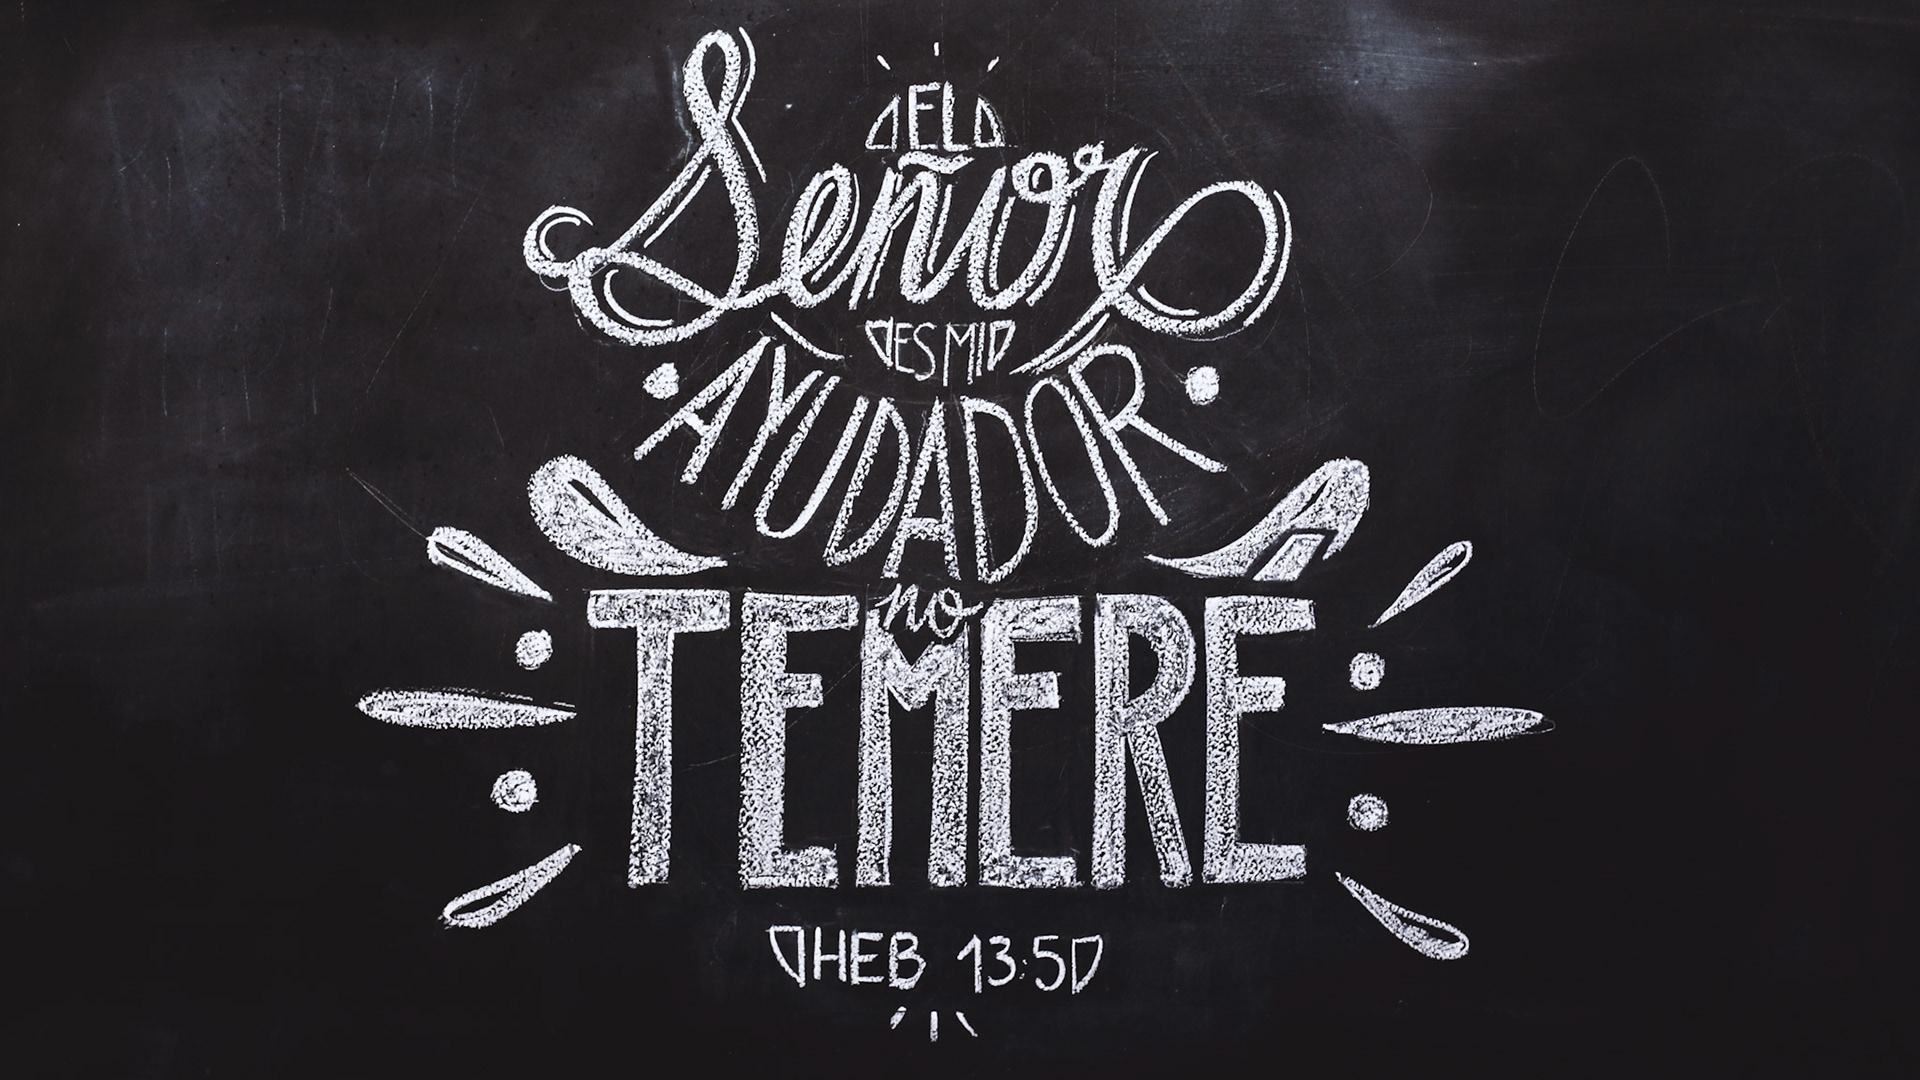 EL
Señor
ES MI
AYUDADOR
no
TEMERÉ
HEB 13:5